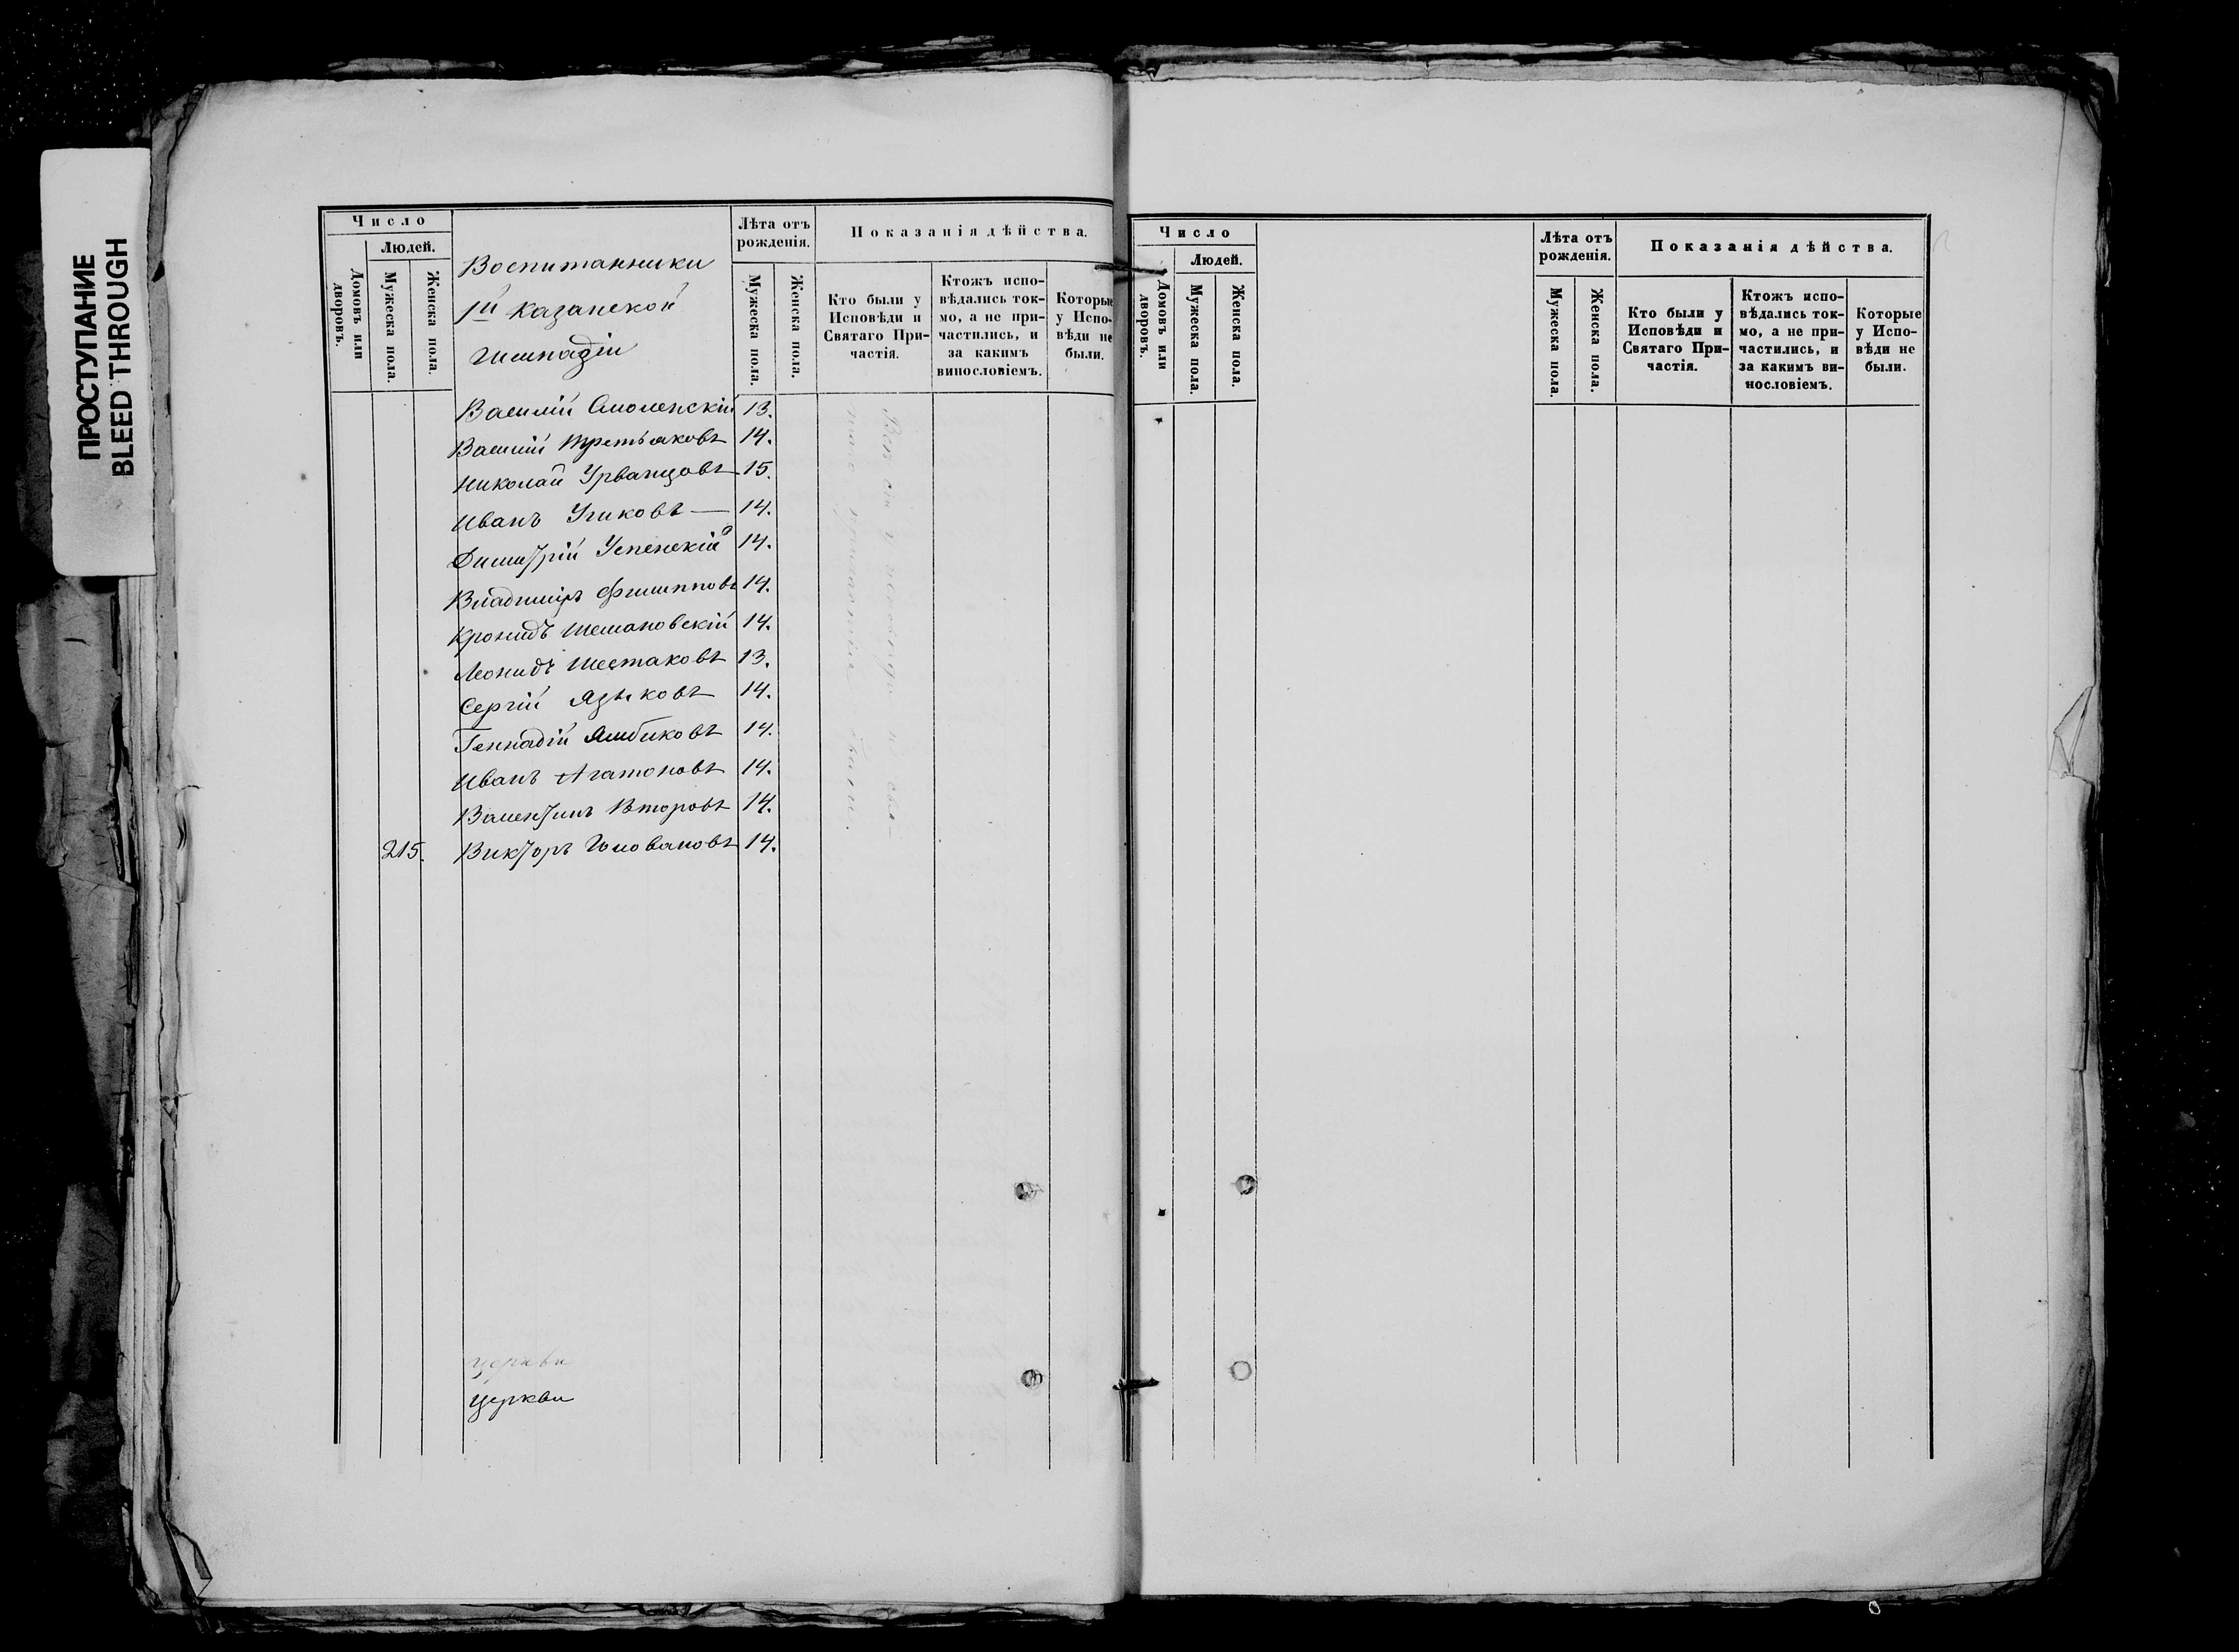 ПРОСТУПАНИЕ
BLEED THROUGH
Число
Людей.
Домовъ или дворовъ.
Мужеска пола.
Женска пола.
Воспитанники
1й Казанской
Гимназіи
Лѣта отъ рожденія.
Мужеска пола.
Женска пола.
Показанія дѣйства.
Кто были у Исповѣди и Святаго При-частія.
Ктожъ испо-вѣдались ток-мо, а не при-частились, и за какимъ винословіемъ.
Которые у Испо-вѣди не были.
Василій Смоленскій 13.
Василій Третьяковъ 14.
Николай Урванцовъ 15.
Иванъ Усиковъ — 14.
Димитрій Успенскій 14.
Владиміръ Филипповъ 14.
Кронидъ Шемановскій 14.
Леонидъ Шестаковъ 13.
Сергій Языковъ 14.
Геннадій 14.
Иванъ Агатоновъ 14.
Валентинъ Второвъ 14.
215. Викторъ Головановъ 14.
церкви
церкви
Число
Людей.
Домовъ или дворовъ.
Мужеска пола.
Женска пола.
Лѣта отъ рожденія.
Мужеска пола.
Женска пола.
Показанія дѣйства.
Кто были у Исповѣди и Святаго При-частія.
Ктожъ испо-вѣдались ток-мо, а не при-частились, и за какимъ ви-нословіемъ.
Которые у Испо-вѣди не были.